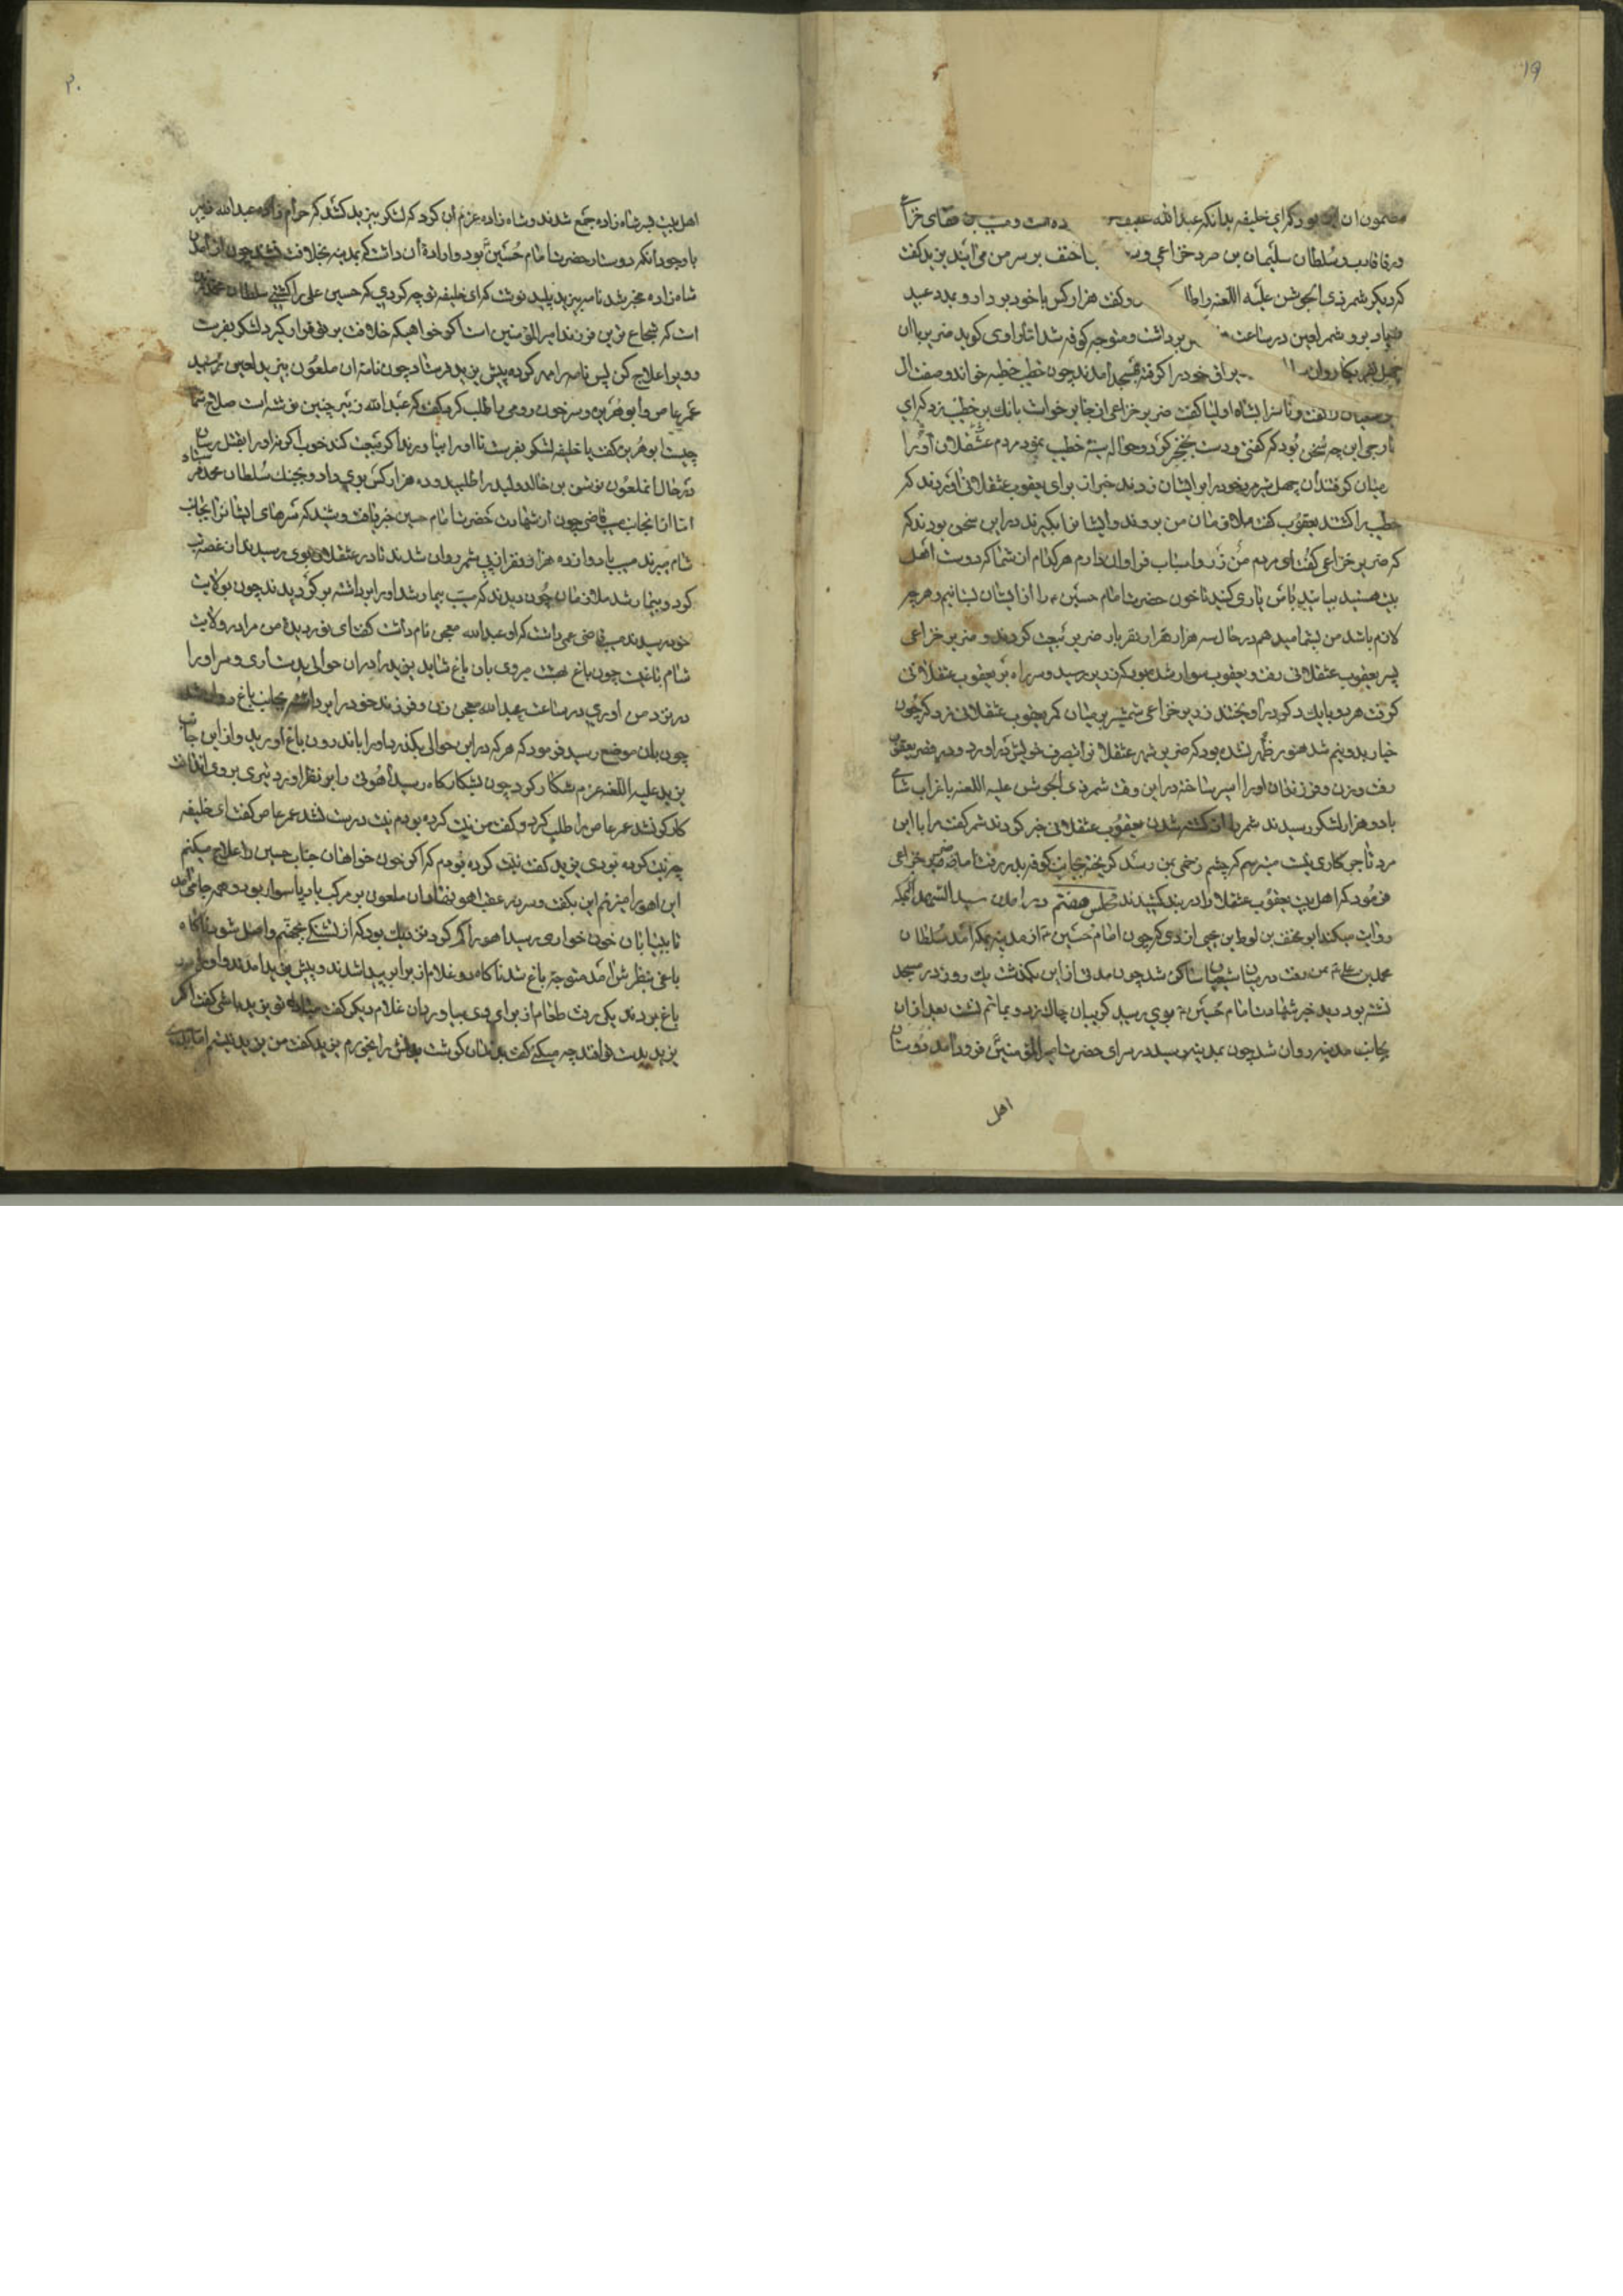 ۱۹
مضمون آن این بود که ای خلیفه بدانکه عبدالله عفیف ده است و مسیب بن قعقاع خزاعی
ورفا قارب و سلطان سلیمان بن صرد خزاعی و با حنف بر سر من می آیند یزید گفت
که دیگر شمر ذی الجوشن علیه اللعنه را طلـ و گفت هزار کس با خود بردار و بمدد عبید
زیاد برو شمر لعین در ساعت برداشت و متوجه کوفه شد اما راوی گوید ضریر با آن
چهل بر اق خود را گرفته بمسجد آمدند چون خطیب خطبه خواند وصف آل
گفت و ناسزا بشاه اولیا گفت ضریر خزاعی از جا برخواست بانک بر خطیب زد که ای
خارجی این چه سخن بود که گفتی و دست بخنجر کرد و حواله سینه خطیب نمود مردم عسقلان او را
میان گرفتند آن چهل نفر خود را بر ایشان زدند خبر از برای یعقوب عسقلانی آوردند که
خطیب را کشتند یعقوب گفت ملازمان من بروند و ایشانرا بگیرند در این سخن بودند که
که ضریر خزاعی گفت ای مردم من زر و اسباب فراوان دارم هر کدام از شما که دوست اهل
بیت هستید بیایید با من یاری کنید تا خون حضرت امام حسین را از ایشان بستانیم و هر چه
لازم باشد من بشما میدهم در حال سه هزار نفر با ضریر بیعت کردند و ضریر خزاعی
پسر یعقوب عسقلانی رفت و یعقوب سوار شده بود که زریر رسید و سر راه بر یعقوب عسقلانی
گرفت هر دو با یکدیگر در آویختند زریر خزاعی شمشیر بر میان کمر یعقوب عسقلانی زد که چون
خیار بدونیم شد هنوز ظهر نشده بود که ضریر شهر عسقلانرا بتصرف خویش در آورد و در قصر یعقوب
رفت و زن و فرزندان او را اسیر ساخته در این وقت شمر ذی الجوشن علیه اللعنه با
با دو هزار لشکر رسیدند شمر را از کشته شدن یعقوب عسقلانی خبر کردند شمر گفت مرا با این
مرد تاجر کاری نیست میترسم که چشم زخمی بمن رسد گریخته بجانب کوفه بدر رفت اما ضریر خزاعی
فرمود که اهل بیت یعقوب عسقلان را در بند کشیدند مجلس هفتم در آمدن سید الشهدا بمکه
روایت میکند ابو مخنف بن لوط بن یحیی ازدی که چون امام حسین از مدینه بمکه آمد سلطان
محمد بن علی بمن رفت در میان شیعیان ساکن شد چون مدتی از این بگذشت یک روز در مسجد
نشسته بود دید خبر شهادت امام حسین بوی رسید گریبان چاک زد و بماتم نشست بعد از آن
بجانب مدینه روان شد چون بمدینه رسید در سرای حضرت امیر المؤمنین فرود آمد دوستان
اهل
۲۰
اهل بیت بر شاه زاده جمع شدند و شاه زاده عزم آن کرد که لشکر بیزید کشد که حرام زاده عبدالله زبیر
با وجود آنکه دوستار حضرت امام حسین بود و اراده آن داشت که بمدینه بخلافت نشیند چون از آمدن
شاه زاده مخبر شد نامه بیزید پلید نوشت که ای خلیفه توجه کردی که حسین علی را کشتی سلطان محمد
است که شجاع ترین فرزند امیر المؤمنین است اگر خواهی که خلافت بر تو قرار گیرد لشکر بفرست
و ویرا علاج کن پس نامه را مهر کرده پیش یزید فرستاد چون نامه آن ملعون بیزید لعین رسید
عمر عاص و ابو هریره و سرجون رومی را طلب کرد گفت که عبدالله زبیر چنین نوشته است صلاح شما
چیست ابو هریره گفت یا خلیفه لشکر بفرست تا او را بیاورند اگر بیعت کند خوب اگر نه او را بقتل رسان
در حال آنملعون نوشن بن خالد ولید را طلبید و ده هزار کس بوی داد و بجنک سلطان محمد فرستاد
اما از آنجانب مسیب قاضی چون از شهادت حضرت امام حسین خبر یافت و شنید که سرهای ایشانرا بجانب
شام میبرند مسیب با دوازده هزار و نفر از پی شمر روان شدند تا در عسقلان بوی رسیدند از غصه تب
کرد و بیمار شد ملازمان چون دیدند که مسیب بیمار شد او را برداشته برگردیدند چون بولایت
خود رسیدند مسیب قاضی عمی داشت که او عبدالله معجی نام داشت گفت ای نور دیدۀ من مرا در ولایت
شام باغیست چون باغ بهشت میروی بآن باغ شاید یزید را در آن حوالی بدست آری و سر او را
در نزد من آوری در ساعت عبدالله معجی زن و فرزند خود را برداشته بجانب باغ روان شد
چون بآن موضع رسید فرمود که هر که در این حوالی بگذرد او را باندرون باغ آورید و از این جانب
یزید علیه اللعنه عزم شکار کرد چون بشکارگاه رسید آهوئی را بر نظر آورد تیری بر وی انداخت
کارگر نشد عمر عاص را طلب کرد و گفت من نیت کرده بودم نیت درست نشد عمر عاص گفت ای خلیفه
چه نیت کرده بودی یزید گفت نیت کرده بودم که اگر خون خواهان جناب حسین را علاج میکنم
این آهو را میزنم این بگفت و سر در عقب آهو نهاد آن ملعون بر مرکب باد پا سوار بود و همه جا می آمد
تا بیابان خون خواری رسید آهو را گم کرد نزدیک بود که از تشنگی بجهنم واصل شود ناگاه
باغی بنظرش آمد متوجه باغ شد ناگاه دو غلام از برابر پیدا شدند و پیش یزید آمدند و او را در
باغ بردند یکی رفت طعام از برای وی بیاورد آن غلام دیگر گفت مبادا تو یزید باشی گفت اگر
یزید بدست تو افتد چه میکنی گفت بدندان گوشت بدنش را بخورم یزید گفت من یزید نیستم اما